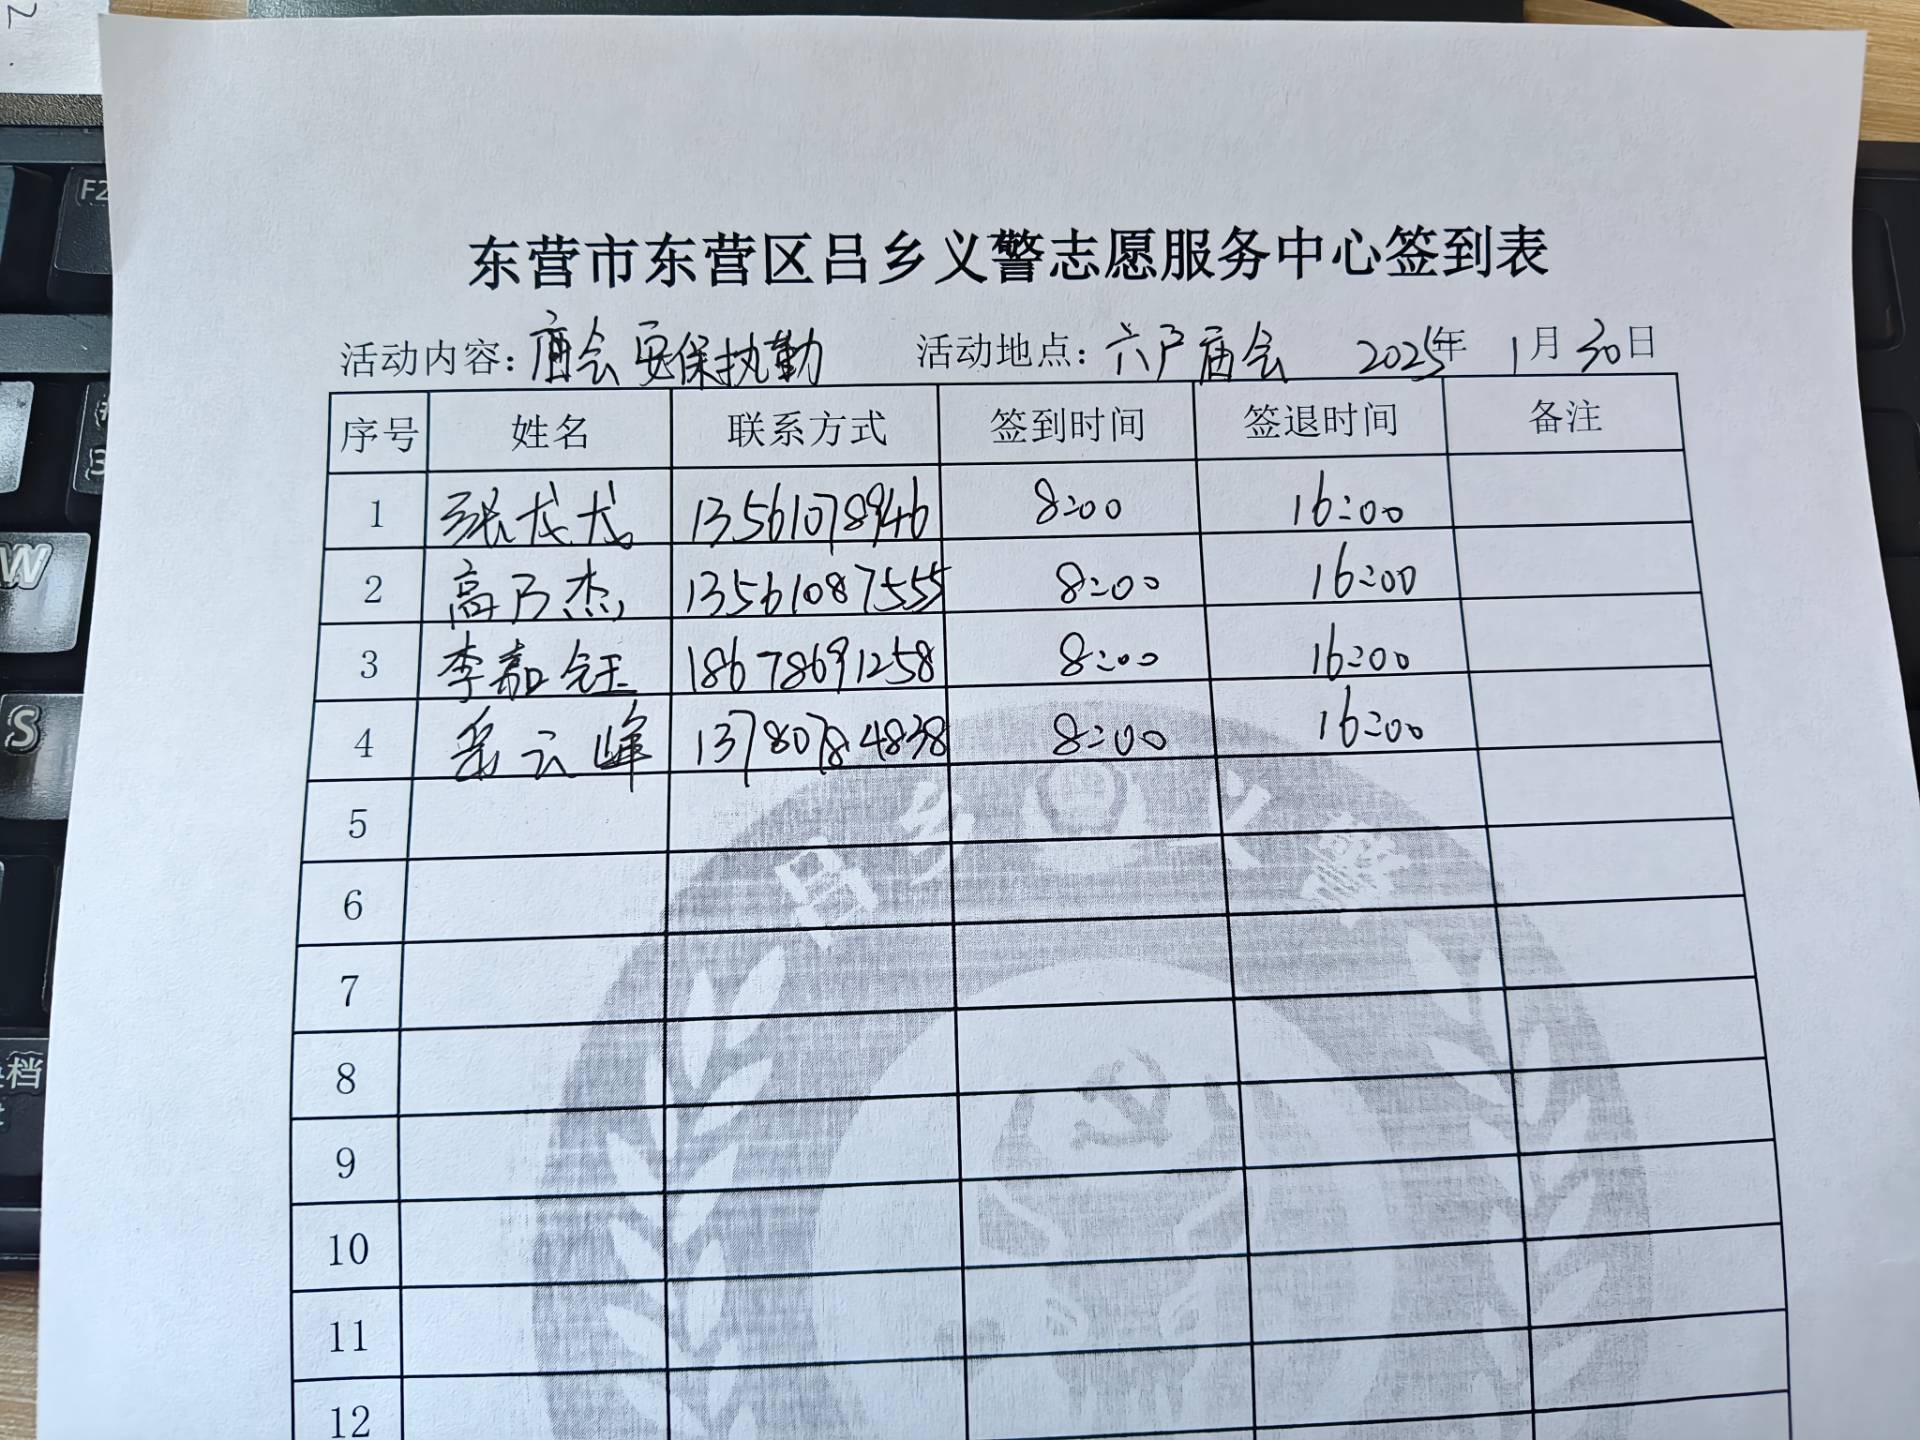 东营市东营区吕乡义警志愿服务中心签到表
活动内容：庙会安保执勤 活动地点：六户庙会 2025年 1月30日
序号 姓名 联系方式 签到时间 签退时间 备注
1 张龙龙 13561078946 8:00 16:00
2 高乃杰 13561087555 8:00 16:00
3 李嘉钰 18678691258 8:00 16:00
4 云峰 13780784838 8:00 16:00
5
6
7
8
9
10
11
12
吕乡义警
F2
3
W
S
档
2